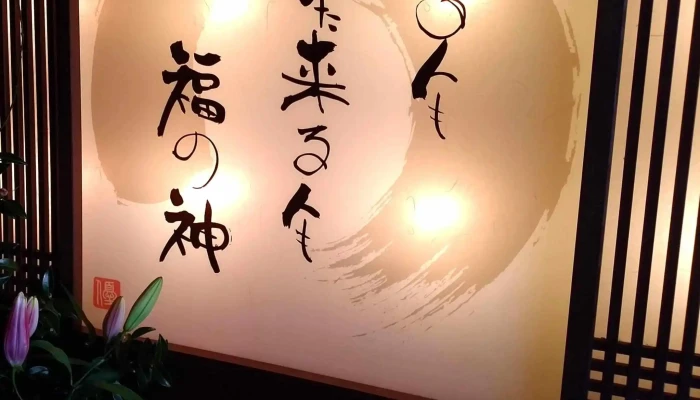 る人も
た来る人も
福の神